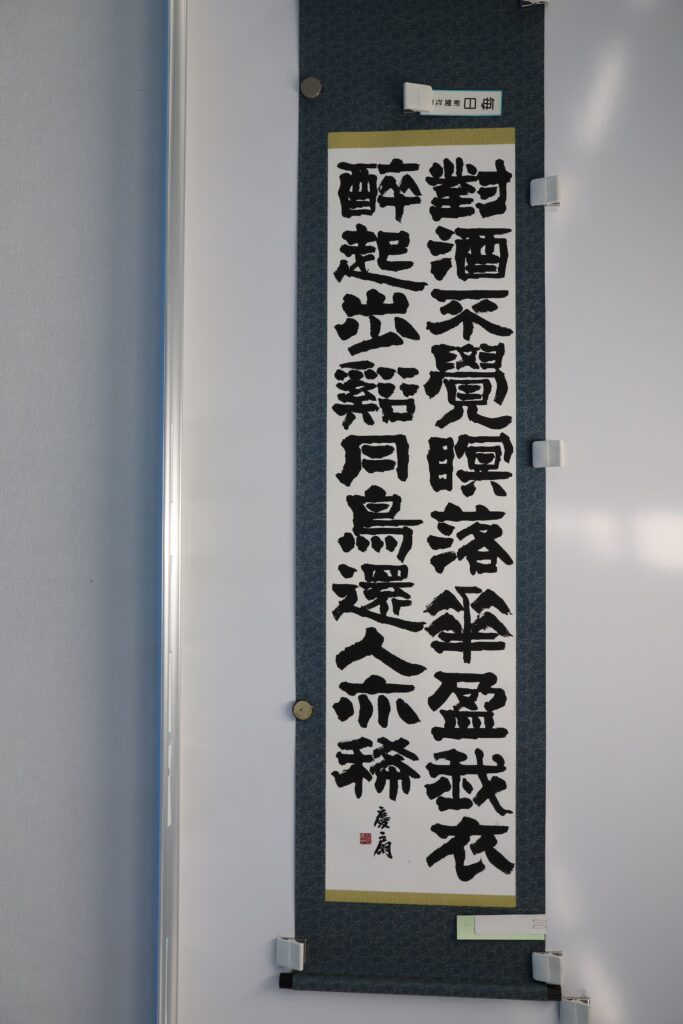 毎日新聞社
對酒不覺暝落華盈我衣
醉起步谿月鳥還人亦稀
慶扇